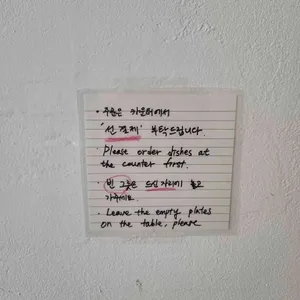 · 주문은 카운터에서
"선결제" 부탁드립니다.
· Please order dishes at
the counter first.
· 빈 그릇은 드신 자리에 놓고
가주세요.
· Leave the empty plates
on the table, please